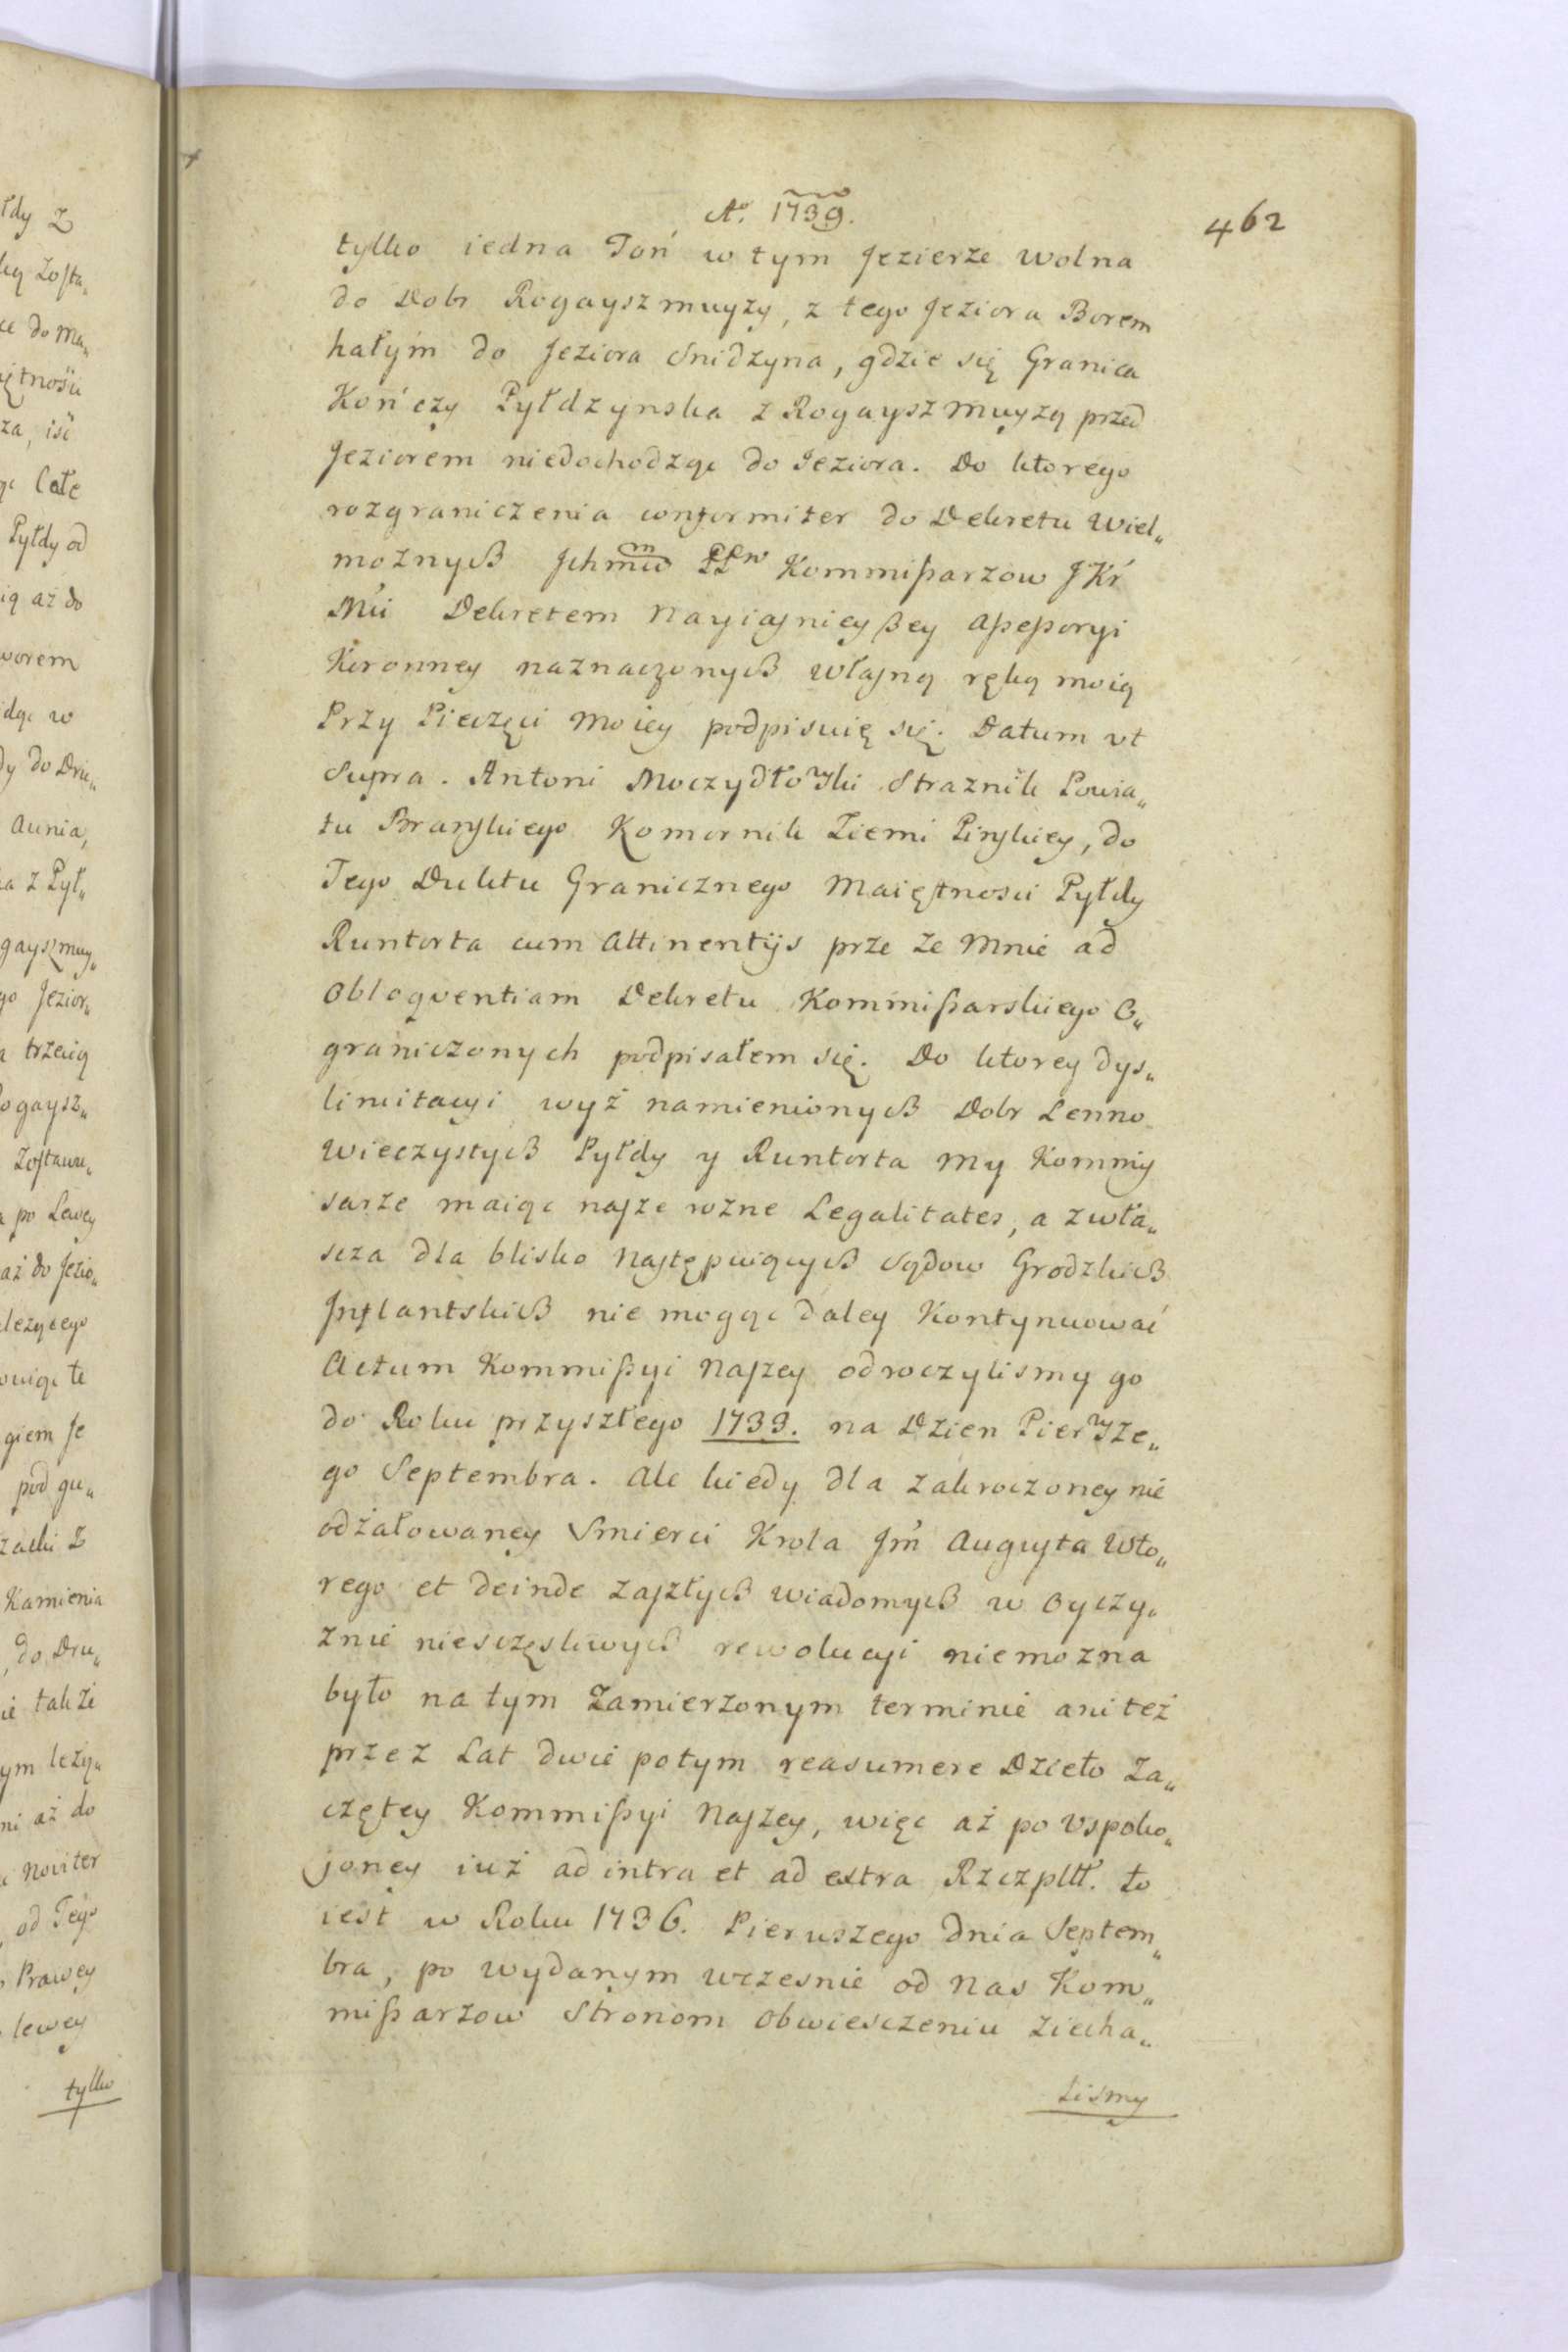 Aº. 1739.
462
tylko iedna Toń w tym Jezierze wolna
do Dobr Rogayszmuyzy, z tego Jeziora Borem
hałym do Jeziora Snidzyna, gdzie się Granica
Kończy Pyłdzynska z Rogayszmuyzą przed
Jeziorem niedochodząc do Jeziora. Do ktorego
rozgraniczenia conformiter do Dekretu Wiel„
możnych Jchmciw PPw Kommißarzow JKr
Mći Dekretem Nayiasnieyszey Aßeßoryi
Koronney naznaczonych własną ręką moią
Przy Pieczęci Moiey podpisuię się. Datum vt
Supra. Antoni Moczydłowski Straznik Powia„
tu Branskiego Komornik Ziemi Pinskiey, do
Tego Duktu Granicznego Maiętnosci Pyłdy
Runtorta cum Attinentijs prze ze Mnie ad
obloquentiam Dekretu Kommißarskiego O„
graniczonych podpisałem się. Do ktorey dys„
limitacyi wyż namienionych Dobr Lenno
wieczystych Pyłdy y Runtorta My Kommis
sarze maiąc nasze rozne Legalitates, a zwła„
scza dla blisko Następuiących Sądow Grodzkich
Jnflantskich nie mogąc daley Kontynuować
Actum Kommißyi Naszey odroczylismy go
do Roku przyszłego 1733. na Dzien Pierwsze„
go Septembra. Ale kiedy dla zakroczoney nie
odżałowaney Smierci Krola Jm Augusta Wto„
rego et deinde zaszłych wiadomych w Oyczy„
znie niesczęsliwych rewolucyi niemozna
było na tym Zamierzonym terminie ani też
przez Lat dwie potym reasumere Dzieło Za„
czętey Kommißyi Naszey, więc aż po Vspoko„
joney iuż ad intra et ad extra Rzczpltt. to
iest w Roku 1736. Pierwszego dnia Septem„
bra, po wydanym wczesnie od Nas Kom„
mißarzow Stronom obwiesczeniu Ziecha„
Lismy
łdy Z
ką Zosta„
ce do Ma„
iętnośći
za, iść
ąc Całe
Pyłdy od
ią aż do
worem
idąc w
dy do Dru„
Aunia,
ka z Pył„
gayszmuy„
go Jezior„
a trzecią
Rogaysz„
Zostawu„
a po Lewey
aż do Jezio„
leżącego
owiąc te
giem Je
pod gu„
zacki Z
Kamienia
, do Dru„
ie także
ym leżą„
ni aż do
a Noviter
, od Tego
o Prawey
o lewey
tylko